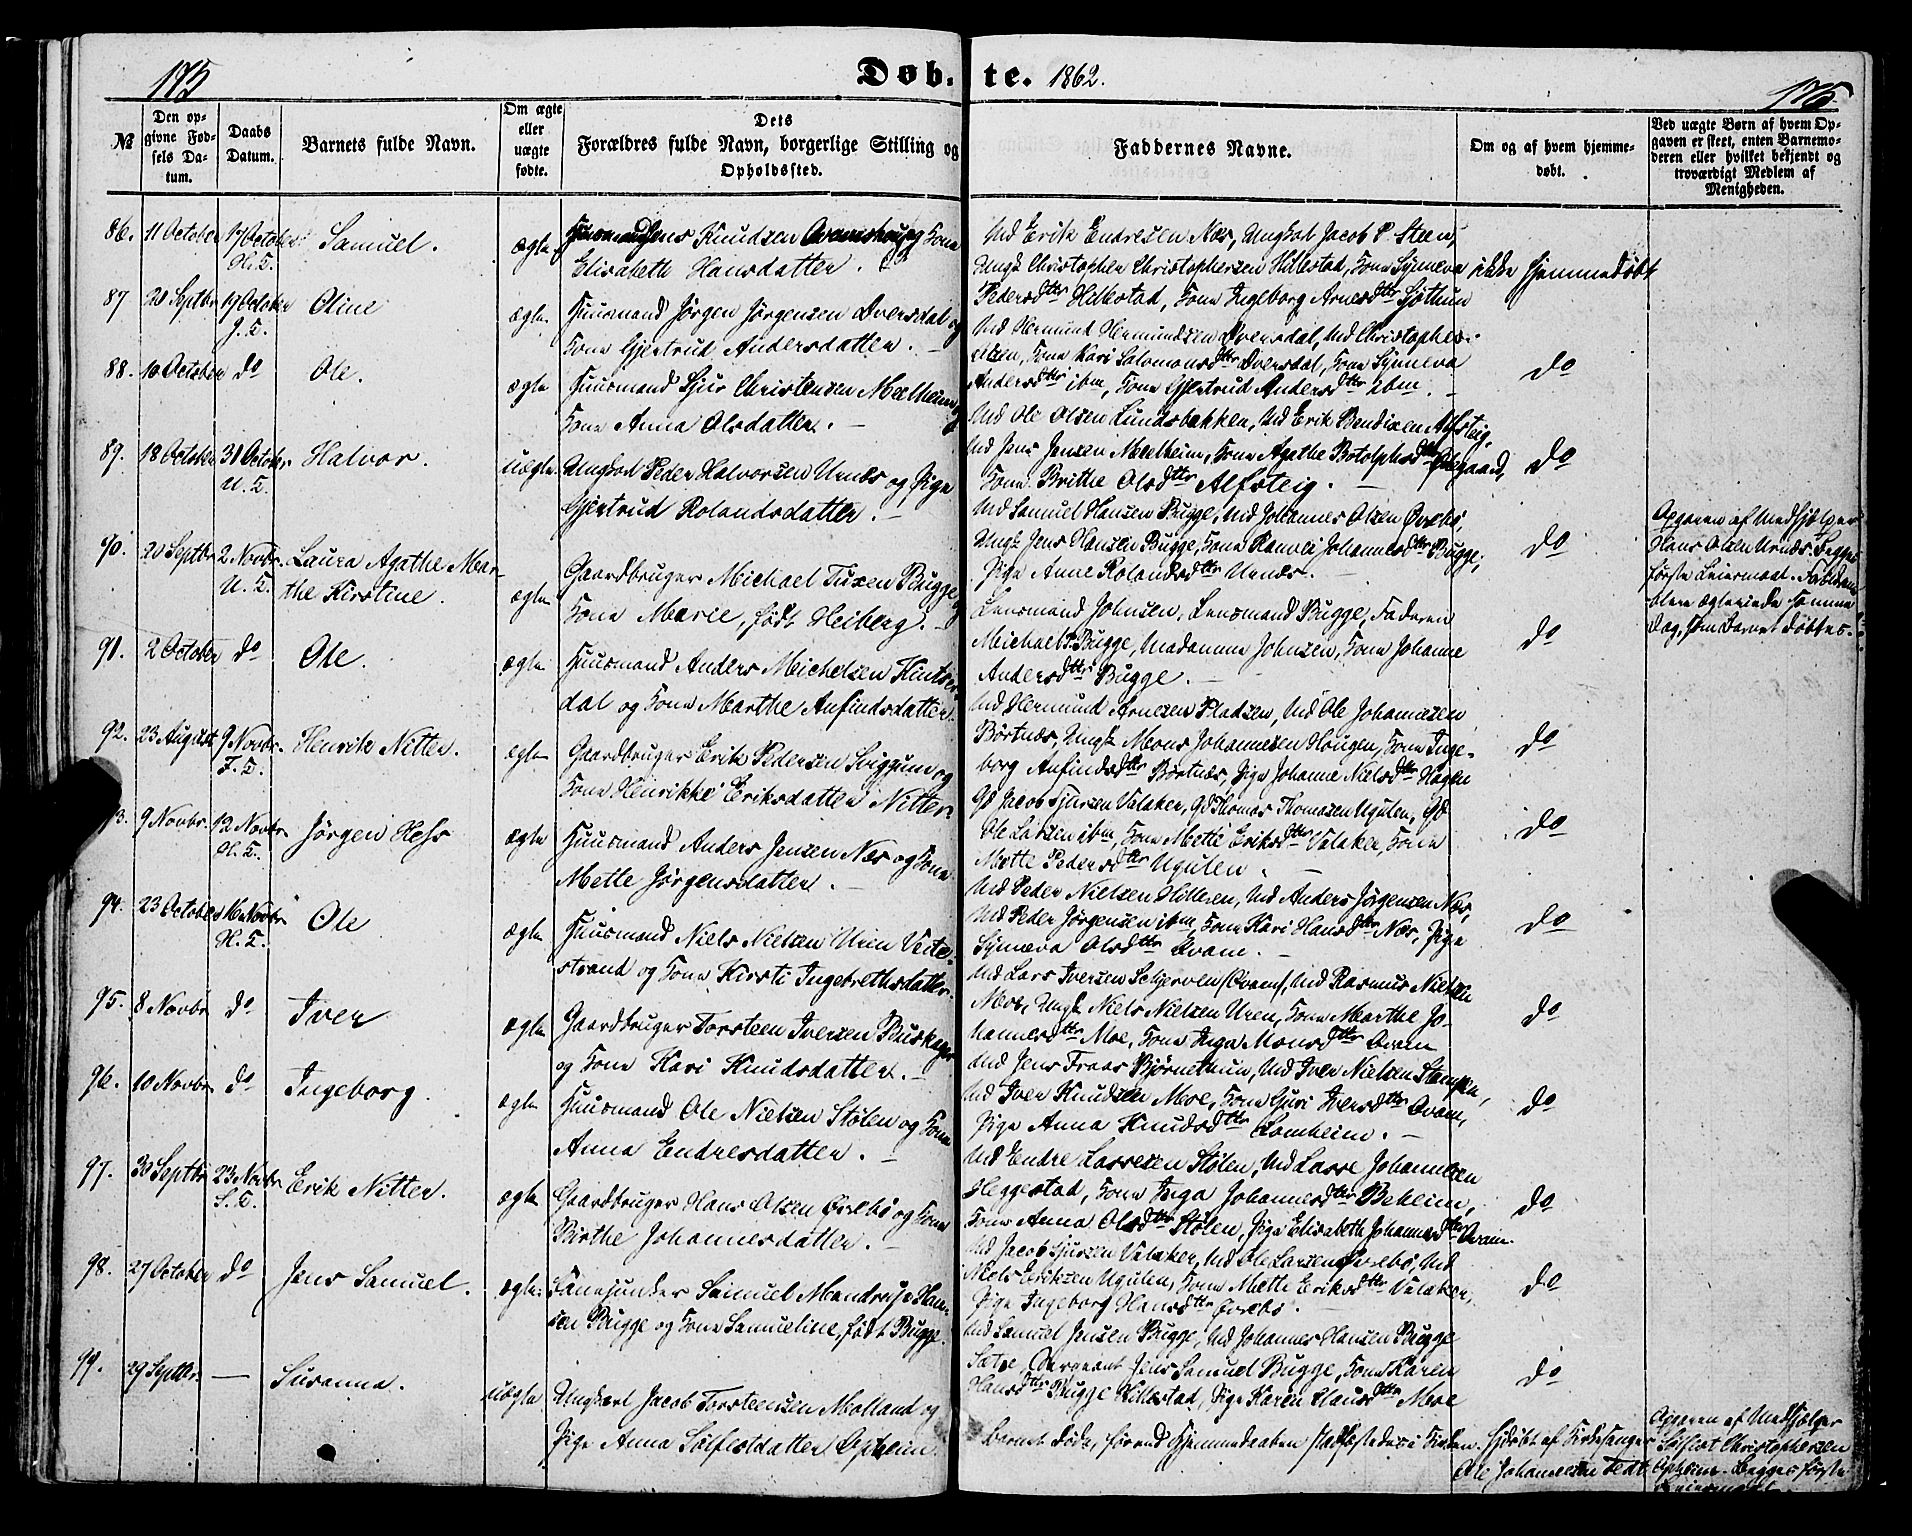 175
Døb- te. 1862.
175.
№
Den op-
givne Fød-
sels Da-
tum.
Daabs
Datum.
Barnets fulde Navn.
Om ægte
eller
uægte
fødte.
Dets
Forældres fulde Navn, borgerlige Stilling og
Opholdssted.
Faddernes Navne.
Om og af hvem hjemme-
døbt.
Ved uægte Børn af hvem Op-
gaven er skeet, enten Barnemo-
deren eller hvilket bekjendt og
troværdigt Medlem af
Menigheden.
86. 11 October 19 October Samuel. ægte Huusmand Jens Knudsen og Kone
H. T. Elisabeth Hansdatter.
Md Erik Endresen Næs, Ungkarl Jacob P. Steen,
Ungk Christopher Christophersen Hillestad, Kone Synneva
Pedersdtter Hillestad, Kone Ingeborg Arnesdtter Sjøthun
ikke hjemmedøbt
87 28 Septbr 19 October Oline ægte Huusmand Jørgen Jørgensen Dversdal og
J. T. Kone Gjertrud Andersdatter.
Md Hermund Hermundsen Dversdal, Md Christopher
Olsen, Kone Kari Salomonsdtter Dversdal, Kone Synneva
Andersdtter ibm, Kone Gjertrud Andersdtter ibm.
do
88. 10 October do Ole. ægte Huusmand Sjur Christensen Mælheim og
Kone Anna Olsdatter.
Md Ole Olsen Lundsbakken, Md Erik Bendixen Alfsteig,
Md Jens Jensen Mælheim, Kone Agathe Botolphsdtter Øvregaard,
Kone Brithe Olsdtter Alfsteig.
do
89. 18 October 31 October Halvor. uægte Ungkarl Peder Halvorsen Urnæs og Pige
U. T. Gjertrud Rolandsdatter.
Md Samuel Hansen Bugge, Md Johannes Olsen Øvrebø,
Ungk Jens Hansen Bugge, Kone Ranvei Johannesdtter Bugge,
Pige Anne Rolandsdtter Urnæs.
do
Opgaven af Medhjælper
Hans Olsen Urnæs. Begges
første Leiermaal. Forældrene
bleve ægteviede samme
Dag, som Barnet døbtes.
90. 20 Septbr 2 Novbr. Laura Agathe Mar-
U. T. the Kirstine. ægte Gaardbruger Michael Tuxen Bugge og
Kone Marie, født Heiberg.
Lensmand Johnsen, Lensmand Bugge, Faderen
Michael T. Bugge, Madamme Johnsen, Kone Johanne
Andersdtter Bugge.
do
91. 2 October do Ole. ægte Huusmand Anders Michelsen Kinser-
dal og Kone Marthe Anfindsdatter.
Md Hermund Arnesen Pladsen, Md Ole Johannesen
Børtnæs, Ungk Mons Johannesen Hougen, Kone Inge-
borg Anfindsdtter Børtnæs, Pige Johanne Nielsdtter Hagen
do
92. 23 August 9 Novbr. Henrik Nitter. ægte Gaardbruger Erik Pedersen Sviggum og
F. T. Kone Henrikke Eriksdatter Nitter.
Gd Jacob Sjursen Valaker, Gd Thomas Thomasen Ugulen, Gd
Ole Larsen ibm, Kone Mette Eriksdtter Valaker, Kone
Mette Pedersdtter Ugulen.
do
93. 9 Novbr. 12 Novbr Jørgen Hess ægte Huusmand Anders Jensen Næs og Kone
H. T. Mette Jørgensdatter.
Md Peder Nielsen Hilleren, Md Anders Jørgensen Næs,
Md Peder Jørgensen ibm, Kone Kari Hansdtter Næs, Pige
Synneva Olsdtter Kvam.
do
94. 23 October 16 Novbr Ole ægte Huusmand Niels Nielsen Uren Veite-
H. T. strand og Kone Kirsti Ingebrethsdatter.
Md Lars Iversen Schjerven (Kvam), Md Rasmus Nielsen
Moe, Ungk Niels Nielsen Uren, Kone Marthe Jo-
hannesdtter Moe, Kone Inga Monsdtter Kvam
do
95. 8 Novbr do Iver ægte Gaardbruger Torsteen Iversen Buskager
og Kone Kari Knudsdatter.
Md Jens Traas Bjørnetuun, Md Iver Nielsen Stampen,
Md Iver Knudsen Moe, Kone Guri Iversdtter Kvam,
Pige Anna Knudsdtter Lomheim.
do
96. 10 Novbr do Ingeborg. ægte Huusmand Ole Nielsen Stølen og Kone
Anna Endresdatter.
Md Endre Lassesen Stølen, Md Lasse Johannesen
Heggestad, Kone Inga Johannesdtter Beheim,
Kone Anna Olsdtter Stølen, Pige Elisabeth Johannesdtter Kvam.
do
97. 30 Septbr 23 Novbr Erik Nitter. ægte Gaardbruger Hans Olsen Øvrebø og Kone
S. T. Birthe Johannesdatter.
Md Jacob Sjursen Valaker, Md Ole Larsen Øvrebø, Md
Niels Eriksen Ugulen, Kone Mette Eriksdtter Valaker,
Pige Ingeborg Hansdtter Øvrebø.
do
98. 27 October do Jens Samuel. ægte. Fanejunker Samuel Mandrup Han-
sen Bugge og Kone Samueline, født Bugge.
Md Samuel Jensen Bugge, Md Johannes Hansen Bugge
Sætre, Sergeant Jens Samuel Bugge, Kone Karen
Hansdtter Bugge Hillestad, Pige Karen Hansdtter Moe
do
99. 29 Septbr. — Susanna. uægte Ungkarl Jacob Torsteensen Molland og
Pige Anna Solfestdatter Opheim.
Barnet døde, førend Hjemmedaaben stadfæstedes i Kirken.
Hjdøbt af Kirkesanger
Ole Johannesen Tedt
Opgaven af Medhjælper
Solfest Christophersen
Opheim. Begges første
Leiermaal.